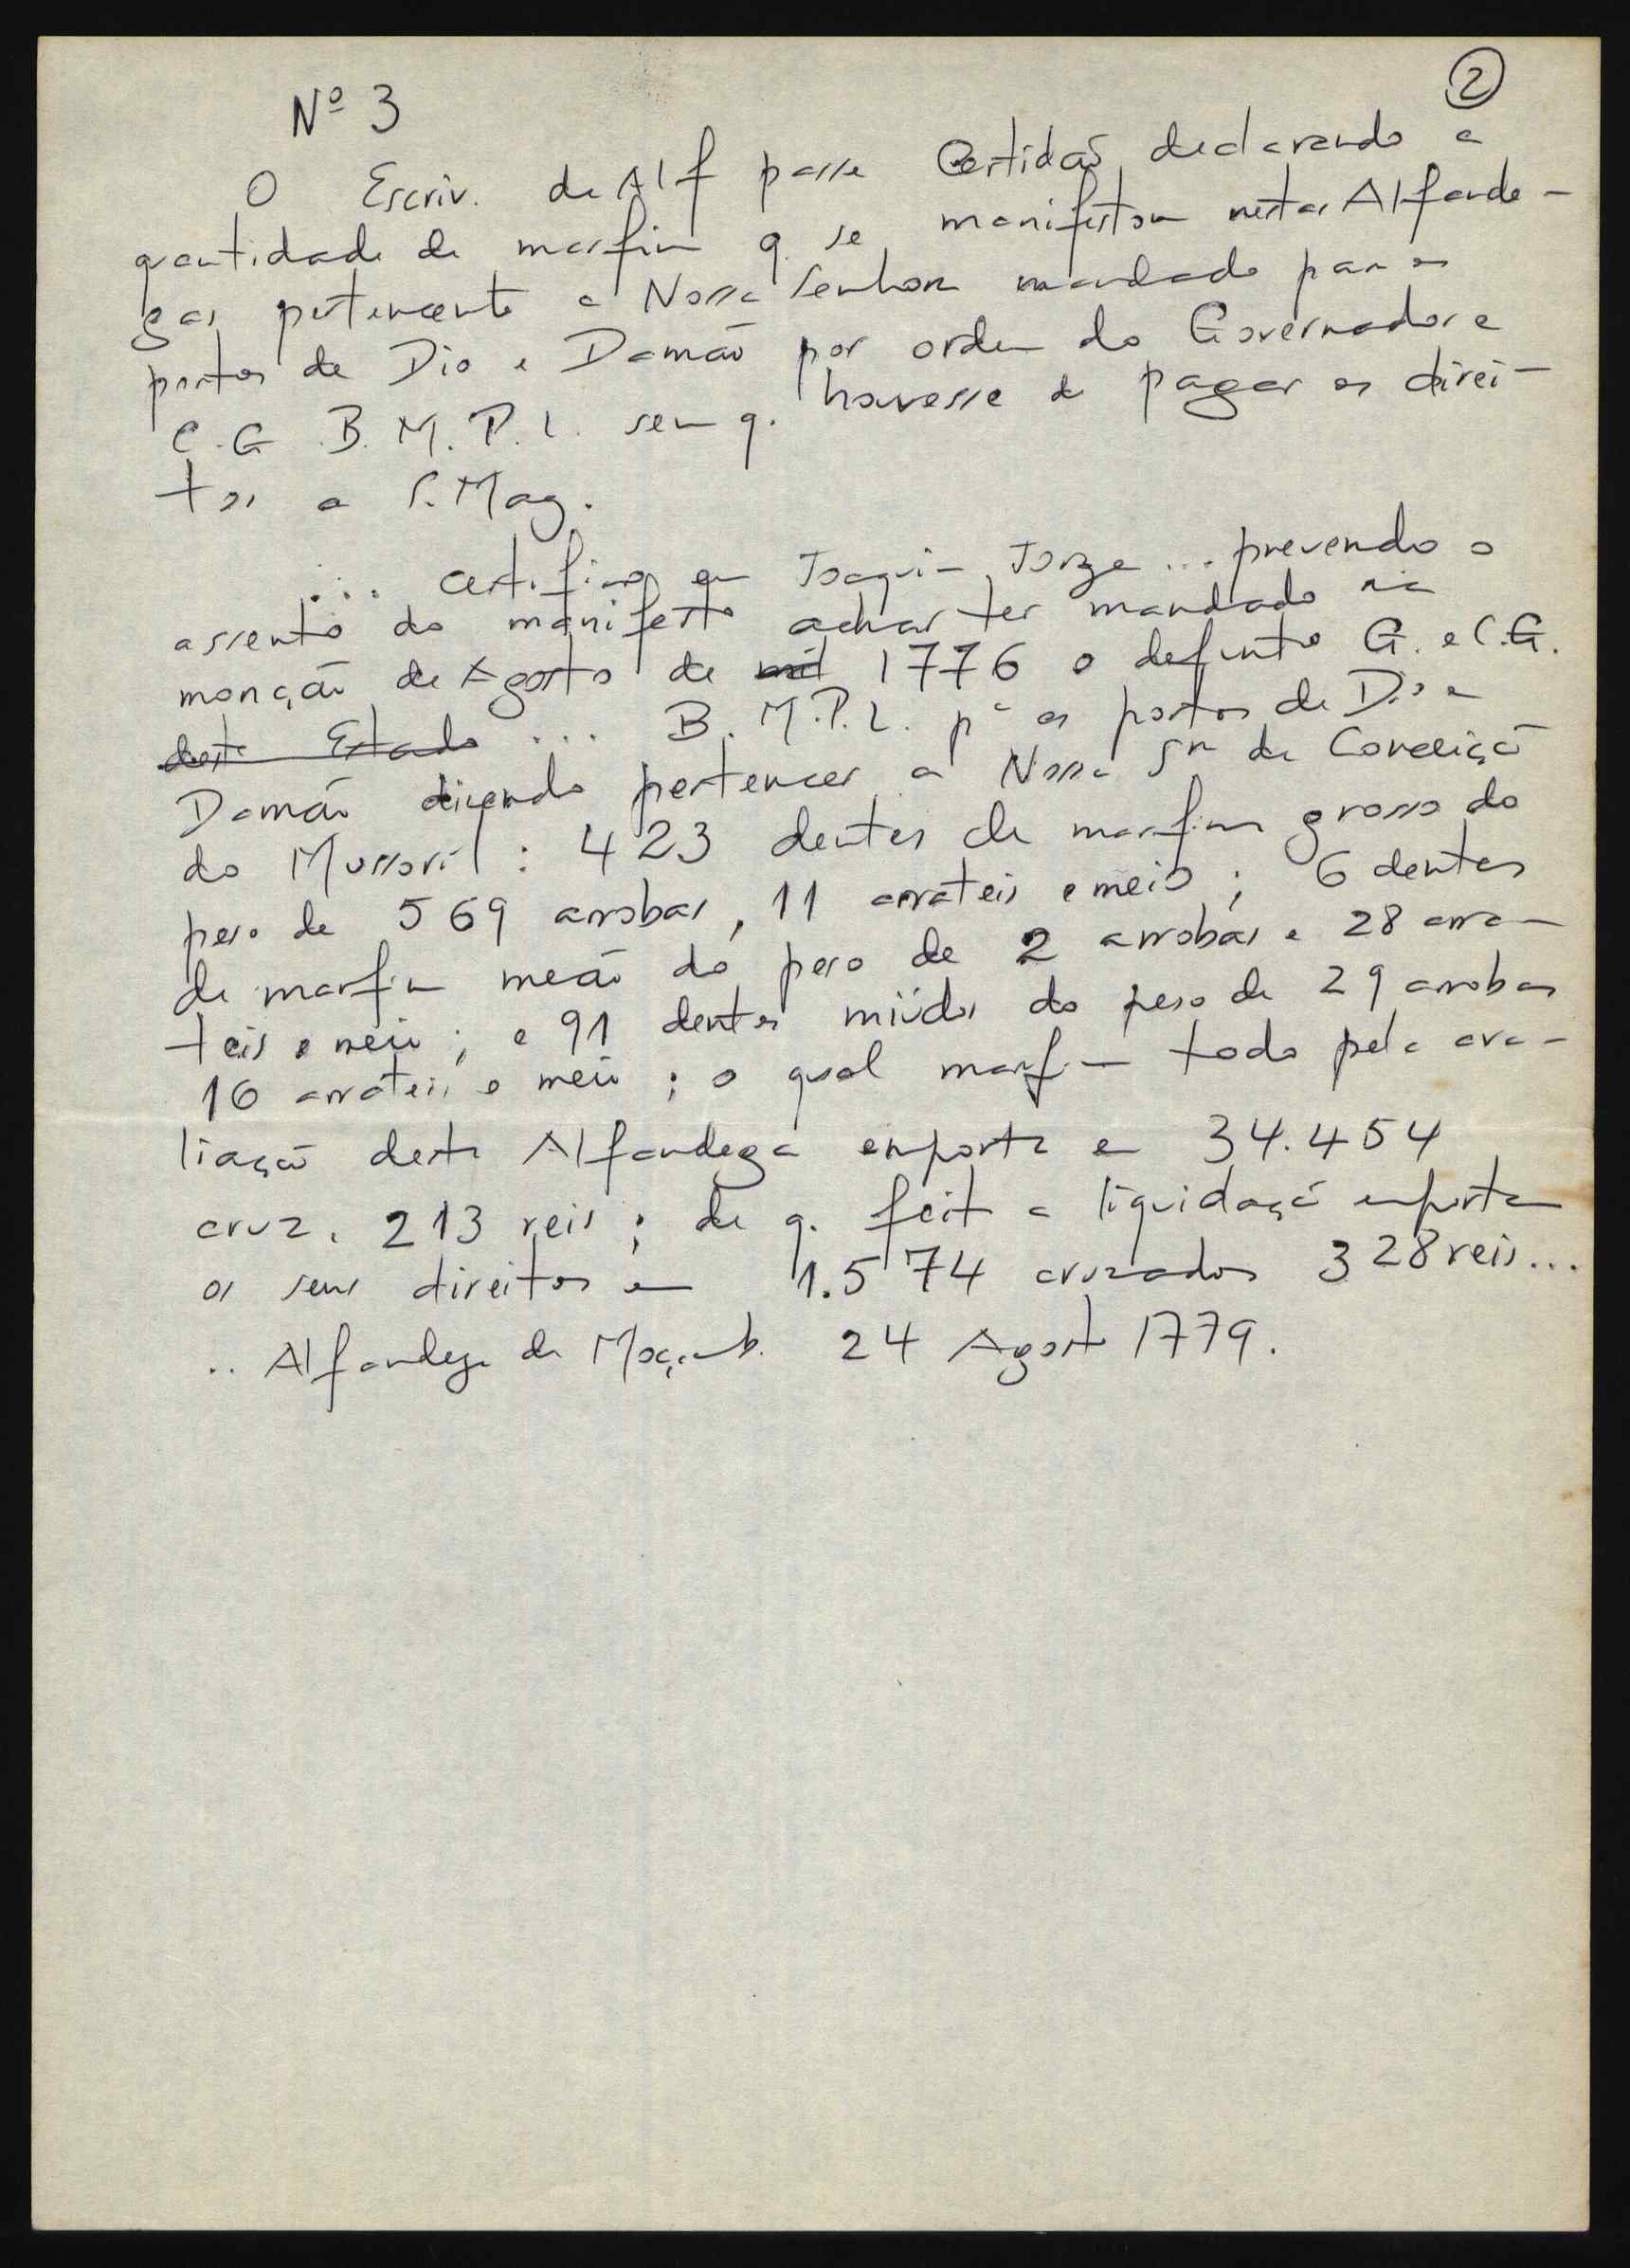 2
Nº 3
O Escriv. da Alf passe Certidão declarando a
quantidade de marfim q. se manifestou nestas Alfande-
gas pertencente a Nossa Senhora mandado para os
portos de Dio e Damão por ordem do Governador e
C. G B. M. P. L. sem q. houvesse de pagar os direi-
tos a S. Mag.
... certifico eu Joaquim Jorge ... prevendo o
assento do manifesto achar ter mandado na
monção de Agosto de mil 1776 o defunto G. e C. G.
deste Estado ... B. M. P. L. pª os portos de Dio e
Damão dizendo pertencer a Nossa Srª da Conceição
do Mussoril : 423 dentes de marfim grosso do
peso de 569 arrobas, 11 arráteis e meio ; 6 dentes
de marfim meão do peso de 2 arrobas e 28 arra-
teis e meio ; e 91 dentes miúdos do peso de 29 arrobas
16 arrateis e meio ; o qual marfim todo pela ava-
liação desta Alfandega emporta em 34.454
cruz. 213 reis ; de q. feita a liquidaçã emporta
os seus direitos em 1.574 cruzados 328 reis ...
.. Alfandega de Moçamb. 24 Agosto 1779.